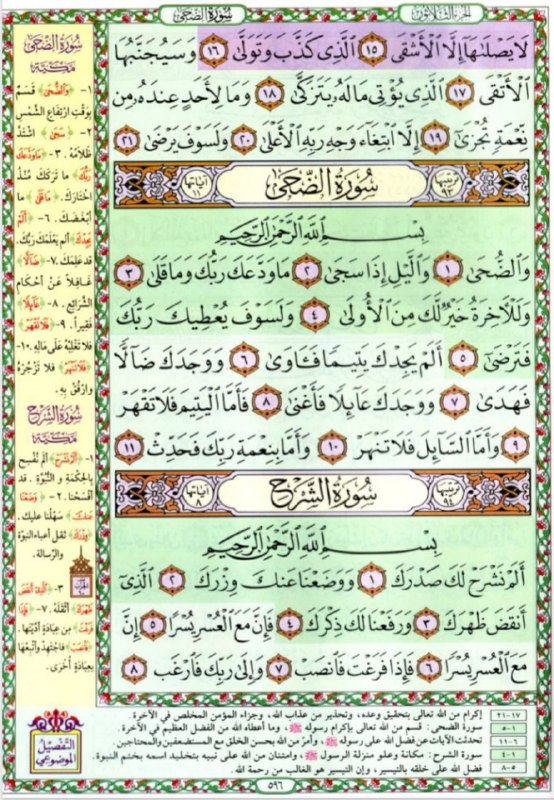 الجزء الثلاثون
سورة الضحى
لَا يَصْلَىٰهَآ إِلَّا ٱلْأَشْقَى ١٥ ٱلَّذِى كَذَّبَ وَتَوَلَّىٰ ١٦ وَسَيُجَنَّبُهَا
ٱلْأَتْقَى ١٧ ٱلَّذِى يُؤْتِى مَالَهُۥ يَتَزَكَّىٰ ١٨ وَمَا لِأَحَدٍ عِندَهُۥ مِن
نِّعْمَةٍ تُجْزَىٰٓ ١٩ إِلَّا ٱبْتِغَآءَ وَجْهِ رَبِّهِ ٱلْأَعْلَىٰ ٢٠ وَلَسَوْفَ يَرْضَىٰ ٢١
ترتيبها ٩٣ سُورَةُ الضُّحَىٰ آياتها ١١
بِسْمِ ٱللَّهِ ٱلرَّحْمَٰنِ ٱلرَّحِيمِ
وَٱلضُّحَىٰ ١ وَٱلَّيْلِ إِذَا سَجَىٰ ٢ مَا وَدَّعَكَ رَبُّكَ وَمَا قَلَىٰ ٣
وَلَلْءَاخِرَةُ خَيْرٌ لَّكَ مِنَ ٱلْأُولَىٰ ٤ وَلَسَوْفَ يُعْطِيكَ رَبُّكَ
فَتَرْضَىٰٓ ٥ أَلَمْ يَجِدْكَ يَتِيمًا فَـَٔاوَىٰ ٦ وَوَجَدَكَ ضَآلًّا
فَهَدَىٰ ٧ وَوَجَدَكَ عَآئِلًا فَأَغْنَىٰ ٨ فَأَمَّا ٱلْيَتِيمَ فَلَا تَقْهَرْ
٩ وَأَمَّا ٱلسَّآئِلَ فَلَا تَنْهَرْ ١٠ وَأَمَّا بِنِعْمَةِ رَبِّكَ فَحَدِّثْ ١١
ترتيبها ٩٤ سُورَةُ الشَّرْحِ آياتها ٨
بِسْمِ ٱللَّهِ ٱلرَّحْمَٰنِ ٱلرَّحِيمِ
أَلَمْ نَشْرَحْ لَكَ صَدْرَكَ ١ وَوَضَعْنَا عَنكَ وِزْرَكَ ٢ ٱلَّذِىٓ
أَنقَضَ ظَهْرَكَ ٣ وَرَفَعْنَا لَكَ ذِكْرَكَ ٤ فَإِنَّ مَعَ ٱلْعُسْرِ يُسْرًا ٥ إِنَّ
مَعَ ٱلْعُسْرِ يُسْرًا ٦ فَإِذَا فَرَغْتَ فَٱنصَبْ ٧ وَإِلَىٰ رَبِّكَ فَٱرْغَب ٨
سُورَةُ الضُّحَىٰ
مَكِّيَّة
١- ﴿وَالضُّحَى﴾ قَسَمٌ
بِوَقْتِ ارْتِفَاعِ الشَّمْسِ
٢- ﴿سَجَى﴾ اشْتَدَّ
ظَلَامُهُ. ٣- ﴿مَا وَدَّعَكَ
رَبُّكَ﴾ مَا تَرَكَكَ مُنْذُ
اخْتَارَكَ. ﴿مَا قَلَى﴾ مَا
أَبْغَضَكَ. ٦- ﴿أَلَمْ
يَجِدْكَ﴾ أَلَمْ يَعْلَمْكَ رَبُّكَ.
قَدْ عَلِمَكَ. ٧- ﴿ضَالًّا﴾
غَافِلًا عَنْ أَحْكَامِ
الشَّرَائِعِ. ٨- ﴿عَائِلًا﴾
فَقِيراً. ٩- ﴿فَلَا تَقْهَرْ﴾
فَلَا تَغْلِبْهُ عَلَى مَالِهِ. ١٠-
﴿فَلَا تَنْهَرْ﴾ فَلَا تَزْجُرْهُ
وَارْفُقْ بِهِ.
سُورَةُ الشَّرْحِ
مَكِّيَّة
١- ﴿أَلَمْ نَشْرَحْ﴾ أَلَمْ نُفْسِحْ
بِالحِكْمَةِ وَ النُّبُوَّةِ. قَدْ
أَفْسَحْنَا. ٢- ﴿وَضَعْنَا
عَنْكَ﴾ سَهَّلْنَا عَلَيْكَ.
﴿وِزْرَكَ﴾ ثِقَلَ أَعْبَاءِ النُّبُوَّةِ
وَالرِّسَالَةِ.
٣- ﴿الَّذِي أَنْقَضَ
ظَهْرَكَ﴾ أَثْقَلَهُ. ٧- ﴿فَإِذَا
فَرَغْتَ﴾ مِنْ عِبَادَةٍ أَدَّيْتَهَا.
﴿فَانْصَبْ﴾ فَاجْتَهِدْ وَأَتْبِعْهَا
بِعِبَادَةٍ أُخْرَى.
١٧-٢١ إكرام من الله تعالى بتحقيق وعده، وتحذير من عذاب الله، وجزاء المؤمن المخلص في الآخرة.
١-٥ سورة الضحى: قسم من الله تعالى بإكرام رسوله ﷺ، وما أعطاه الله من الفضل العظيم في الآخرة.
٦-١١ تحدثت الآيات عن فضل الله على رسوله ﷺ، وأمرٌ من الله بحسن الخلق مع المستضعفين والمحتاجين.
١-٤ سورة الشرح: مكانة وعلو منزلة الرسول ﷺ، وامتنان من الله على نبيه بتخليد اسمه بختم النبوة.
٥-٨ فضل الله على خلقه بالتيسير، وإن التيسير هو الغالب من رحمة الله.
التفصيل
الموضوعي
٥٩٦